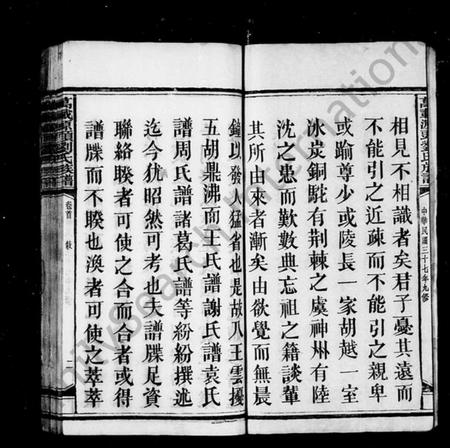 萬載源頭劉氏族譜
中華民國三十七年九修
相見不相識者矣君子憂其遠而
不能引之近疎而不能引之親卑
或踰尊少或陵長一家胡越一室
冰炭銅駝有荆棘之虞神州有陸
沈之患而歎數典忘祖之籍談輩
其所由來者漸矣由欲覺而無晨
鐘以發人猛省也是故八王雲擾
五胡鼎沸而王氏譜謝氏譜袁氏
譜周氏譜諸葛氏譜等紛紛撰述
迄今犹昭然可考也夫譜牒足資
聯絡睽者可使之合而合者或得
譜牒而不睽也渙者可使之萃萃
萬載源頭劉氏族譜
卷首
敘
二
mycosearch International